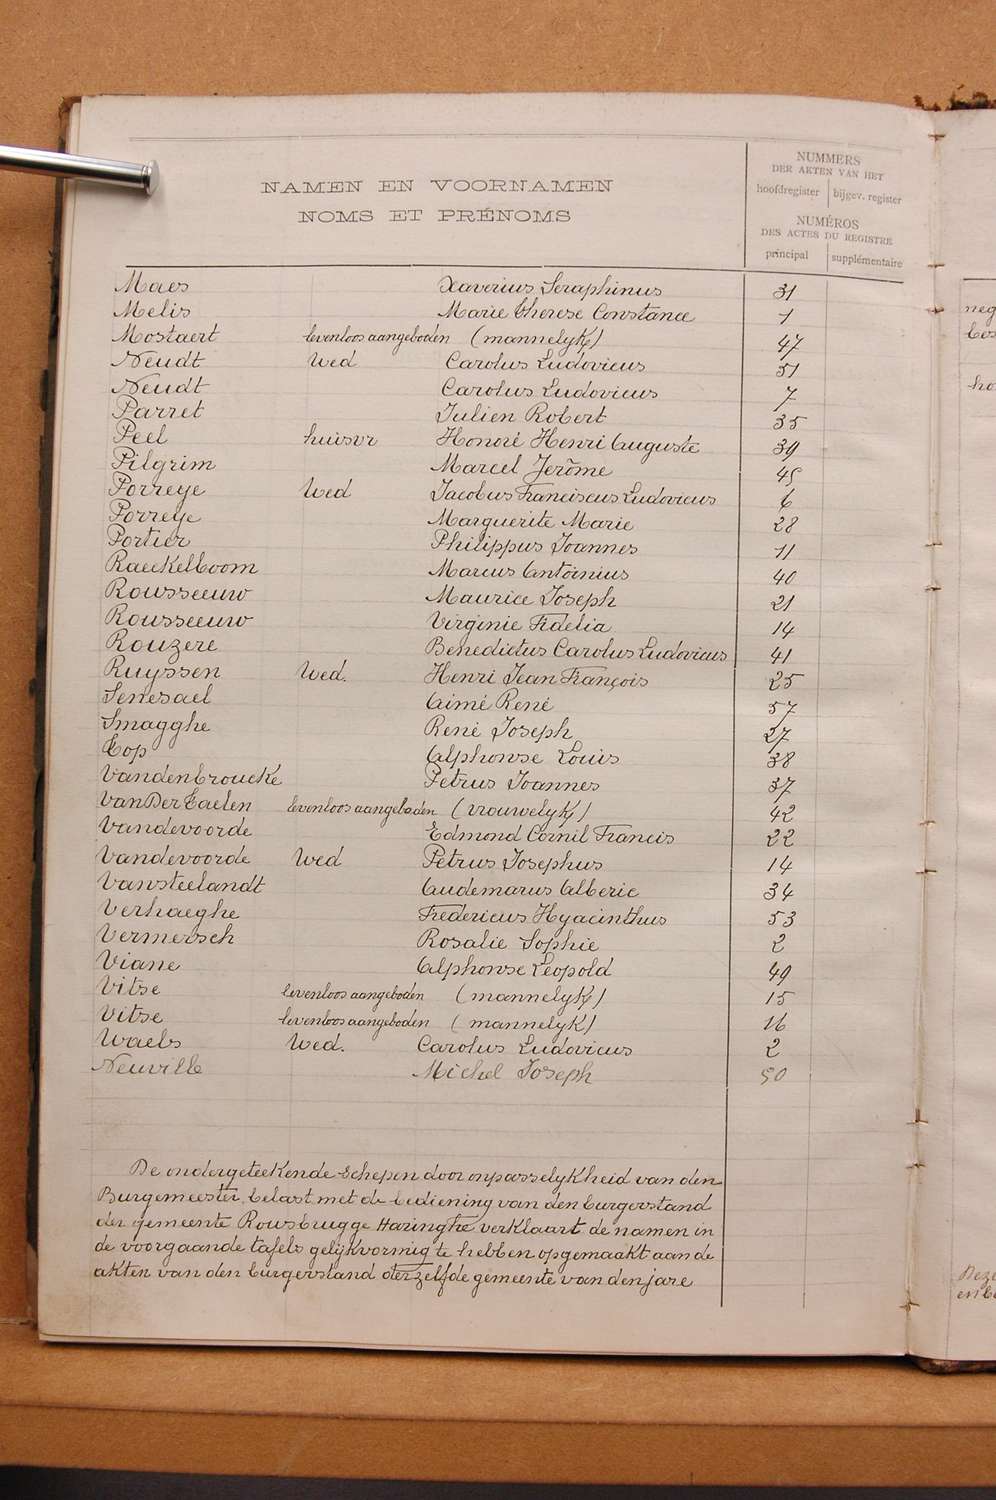 NAMEN EN VOORNAMEN
NOMS ET PRÉNOMS
NUMMERS
DER AKTEN VAN HET
hoofdregister bijgev. register
NUMÉROS
DES ACTES DU REGISTRE
principal supplémentaire
Maes Xaverius Seraphinus 31
Melis Marie Therese Constance 1
Mostaert levenloos aangeboden (mannelyk) 47
Neudt Wed Carolus Ludovicus 51
Neudt Carolus Ludovicus 7
Parret Julien Robert 35
Peel huisvr Honoré Henri Auguste 39
Pilgrim Marcel Jerôme 45
Porreye Wed Jacobus Franciscus Ludovicus 6
Porreye Marguerite Marie 28
Portier Philippus Joannes 11
Raeckelboom Marcus Antoinius 40
Rousseeuw Maurice Joseph 21
Rousseeuw Virginie Fidelia 14
Rouzere Benedictus Carolus Ludovicus 41
Ruyssen Wed. Henri Jean François 25
Senesael Aimé René 57
Smagghe René Joseph 27
Top Alphonse Louis 38
Vandenbroucke Petrus Joannes 37
VanDerTaelen levenloos aangeboden (vrouwelyk) 42
Vandevoorde Edmond Cornil Francis 22
Vandevoorde Wed Petrus Josephus 14
Vansteelandt Audemarus Alberic 34
Verhaeghe Fredericus Hyacinthus 53
Vermersch Rosalie Sophie 2
Viane Alphonse Leopold 49
Vitse levenloos aangeboden (mannelyk) 15
Vitse levenloos aangeboden (mannelyk) 16
Waels Wed. Carolus Ludovicus 2
Neuville Michel Joseph 50
De ondergeteekende Schepen door onpasselykheid van den
Burgemeester, belast met de bediening van den burgerstand
der gemeente Rousbrugge Haringhe verklaart de namen in
de voorgaande tafels gelijkvormig te hebben opgemaakt aan de
akten van den burgerstand derzelfde gemeente van den jare
neg
ho
Deze